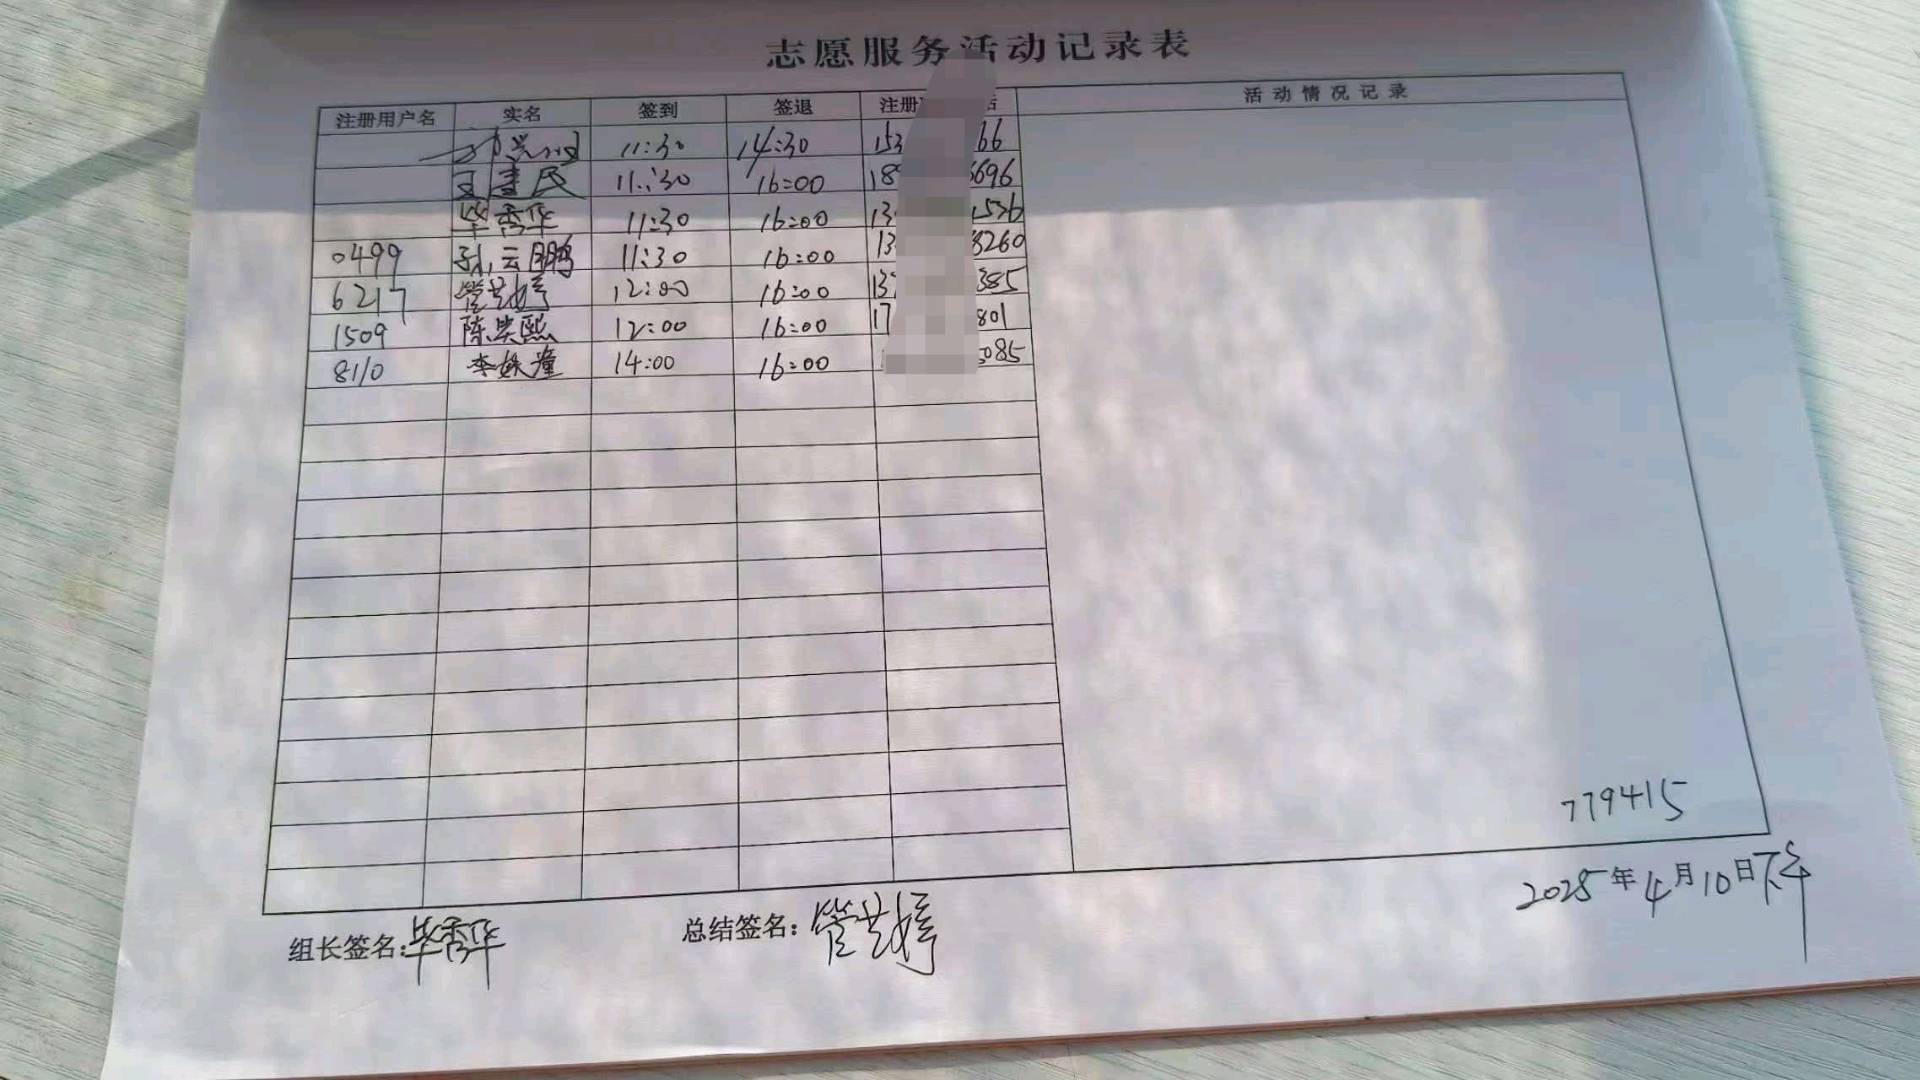 志愿服务活动记录表
注册用户名 实名 签到 签退 注册 活动情况记录
11:30 14:30 153 66
王建民 11:30 16:00 18 6696
毕秀华 11:30 16:00 13 1536
0499 孙云鹏 11:30 16:00 13 8260
6217 管梦婷 12:00 16:00 13 385
1509 陈奕熙 12:00 16:00 17 801
8110 李姝瞳 14:00 16:00 5085
779415
2025年4月10日下午
组长签名:毕秀华 总结签名:管梦婷